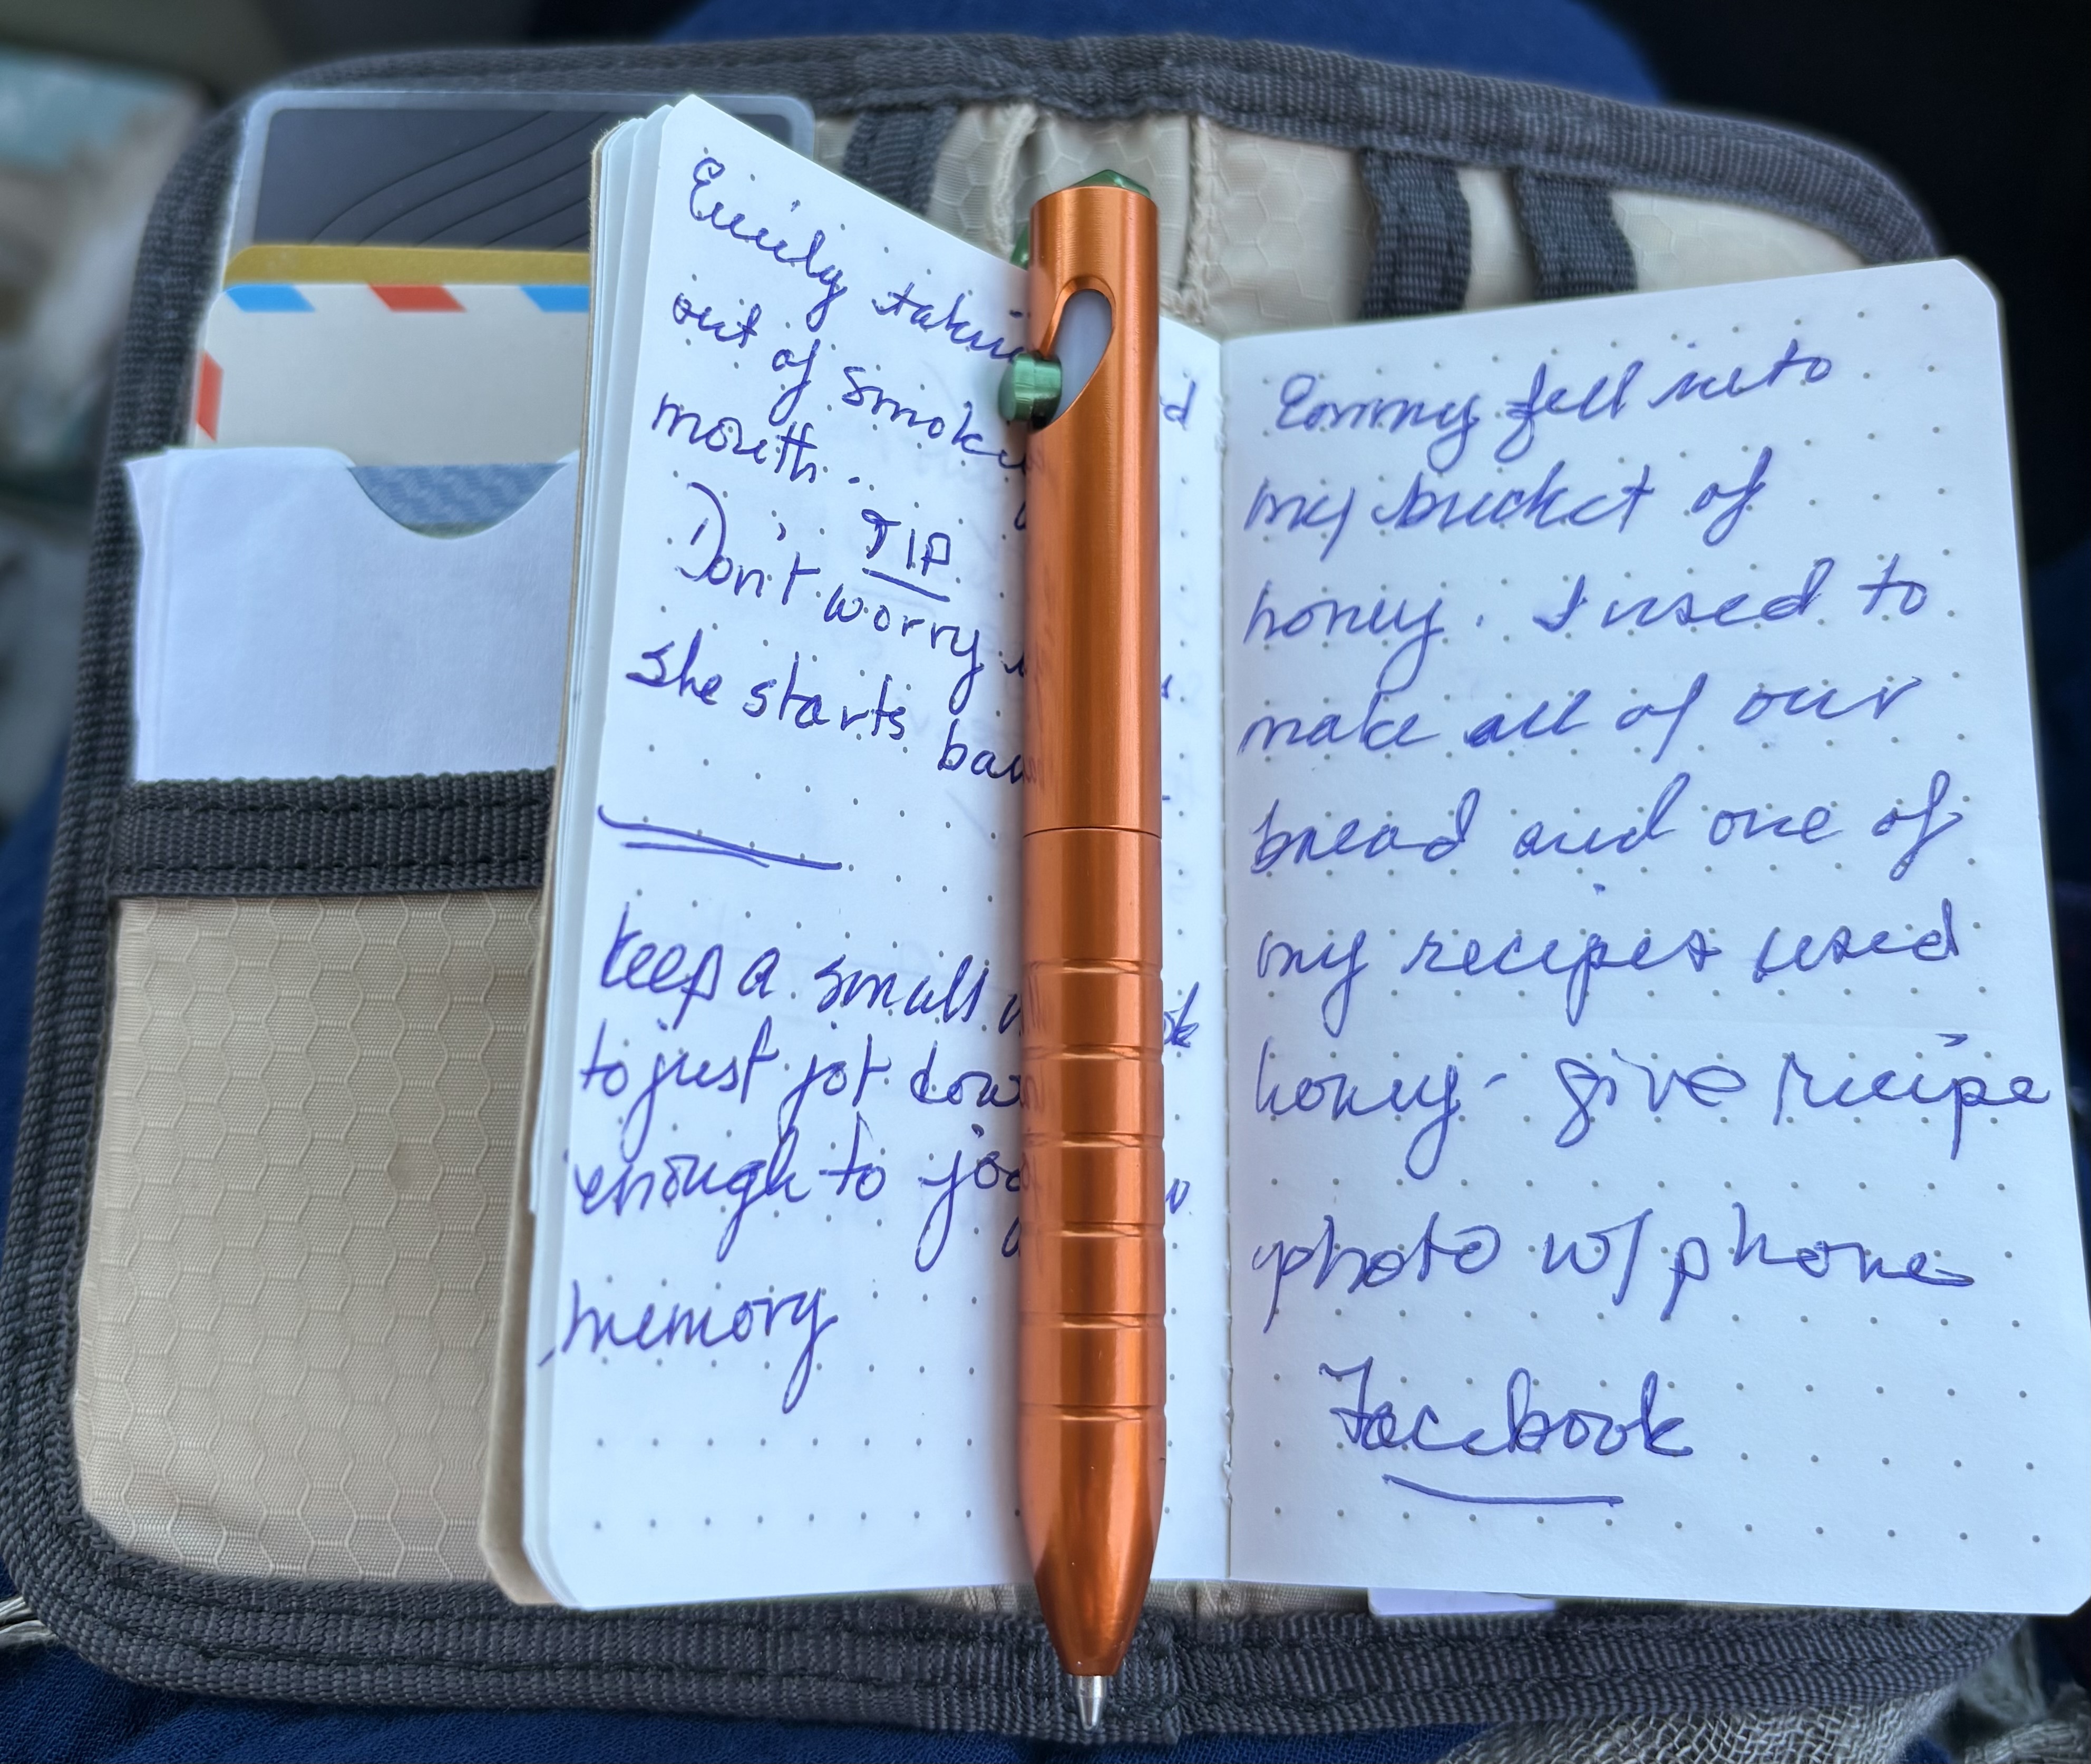 Emily takin
out of smok
mouth..
TIP
Don't worry
she starts
keep a small
to just jot down
enough to jog
memory
Emmy fell into
my bucket of
honey. I used to
make all of our
bread and one of
my recipes used
honey - give recipe
photo w/ phone
Facebook